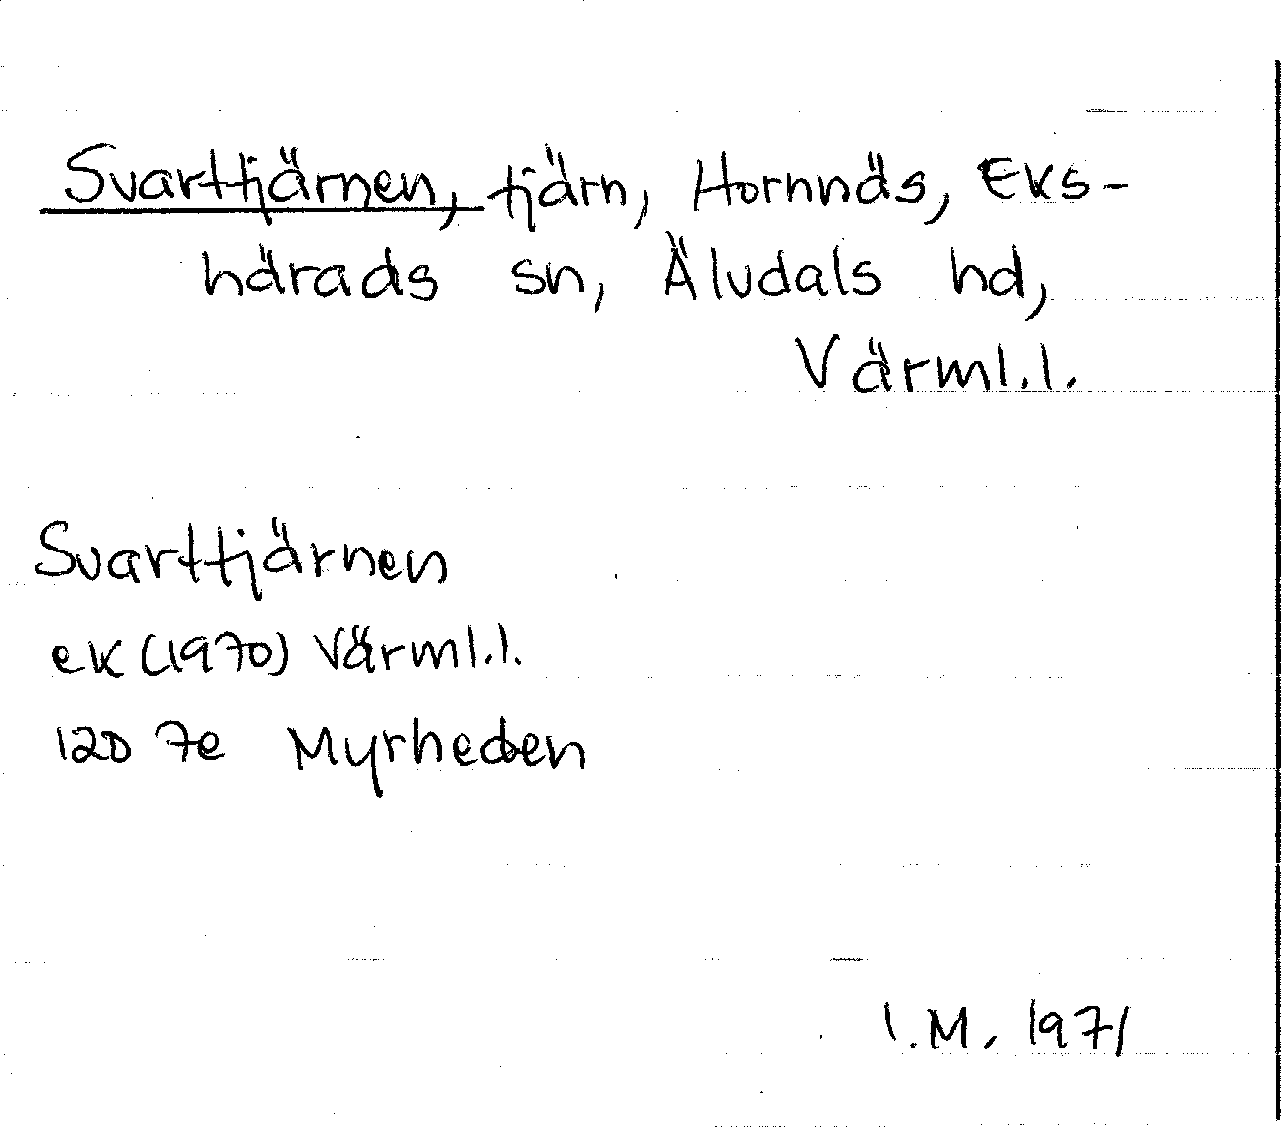 Svarttjärnen, tjärn, Hornnäs, Eks-
härads sn, Älvdals hd,
Värml.l.
Svarttjärnen
ek (1970) Värml.l.
12D 7e Myrheden
I.M. 1971